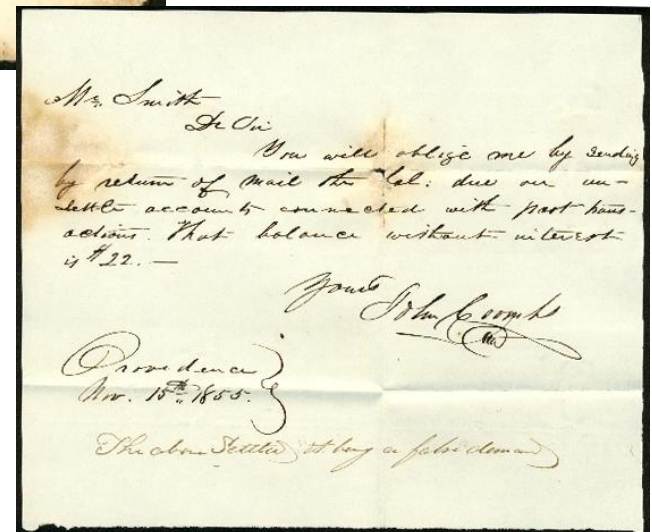 Mr. Smith
Dr Sir
You will oblige me by sending
by return of mail the bal: due on un-
settle accounts connected with past trans-
actions. That balance without interest
is $22.—
Yours
John Coombs
Providence
Nov. 15th, 1855.
The above Settled it being a false demand